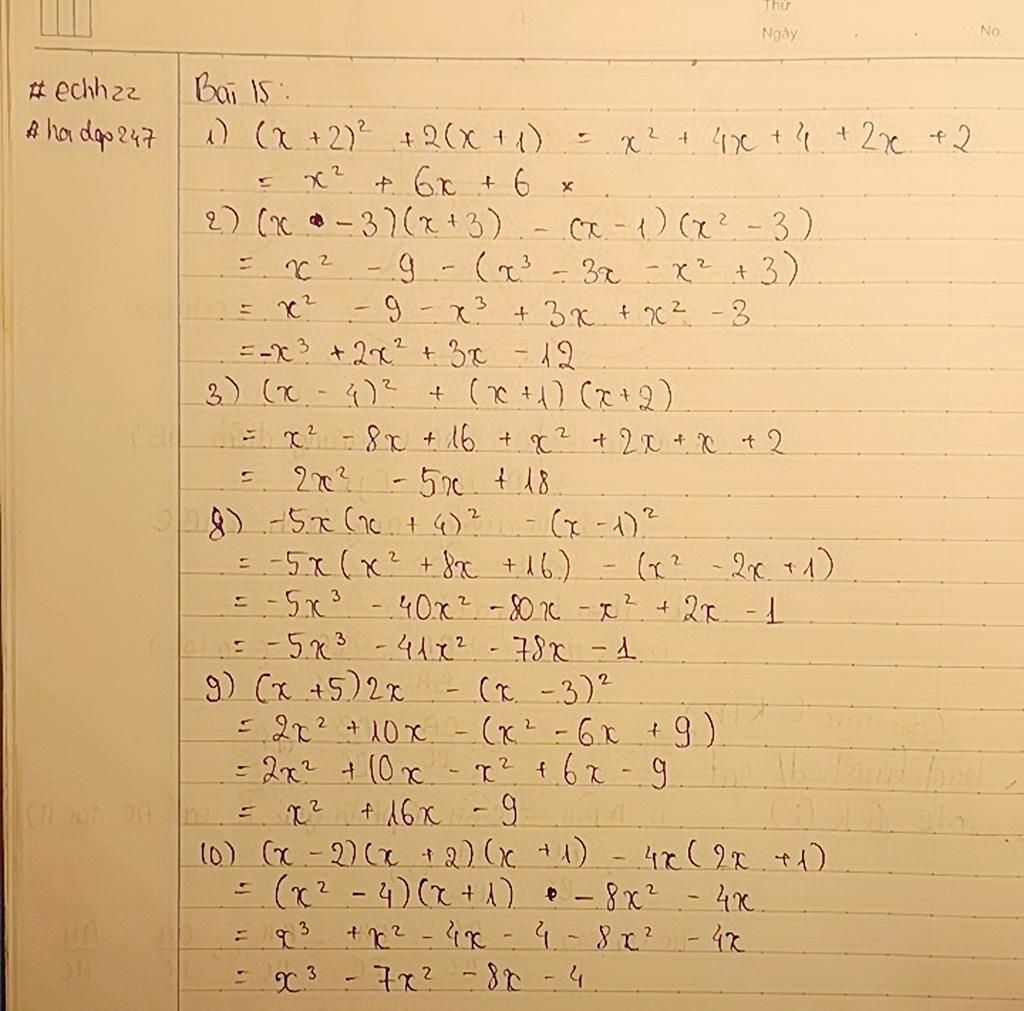 Thứ
Ngày . . No.
#echh22
#hoidap247
Bài 15:
1) (x + 2)² + 2(x + 1) = x² + 4x + 4 + 2x + 2
= x² + 6x + 6
2) (x - 3)(x + 3) - (x - 1)(x² - 3)
= x² - 9 - (x³ - 3x - x² + 3)
= x² - 9 - x³ + 3x + x² - 3
= -x³ + 2x² + 3x - 12
3) (x - 4)² + (x + 1)(x + 2)
= x² - 8x + 16 + x² + 2x + x + 2
= 2x² - 5x + 18
8) -5x(x + 4)² - (x - 1)²
= -5x(x² + 8x + 16) - (x² - 2x + 1)
= -5x³ - 40x² - 80x - x² + 2x - 1
= -5x³ - 41x² - 78x - 1
9) (x + 5)2x - (x - 3)²
= 2x² + 10x - (x² - 6x + 9)
= 2x² + 10x - x² + 6x - 9
= x² + 16x - 9
10) (x - 2)(x + 2)(x + 1) - 4x(2x + 1)
= (x² - 4)(x + 1) - 8x² - 4x
= x³ + x² - 4x - 4 - 8x² - 4x
= x³ - 7x² - 8x - 4